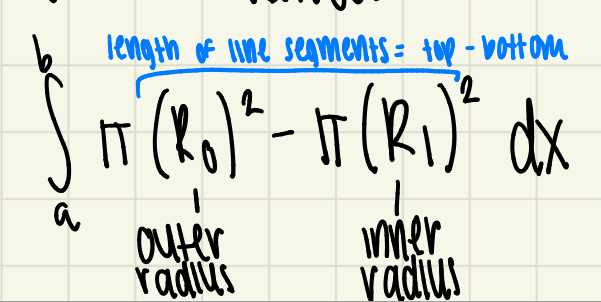 length of line segments = top - bottom
∫ₐᵇ π(R₀)² - π(R₁)² dx
outer inner
radius radius